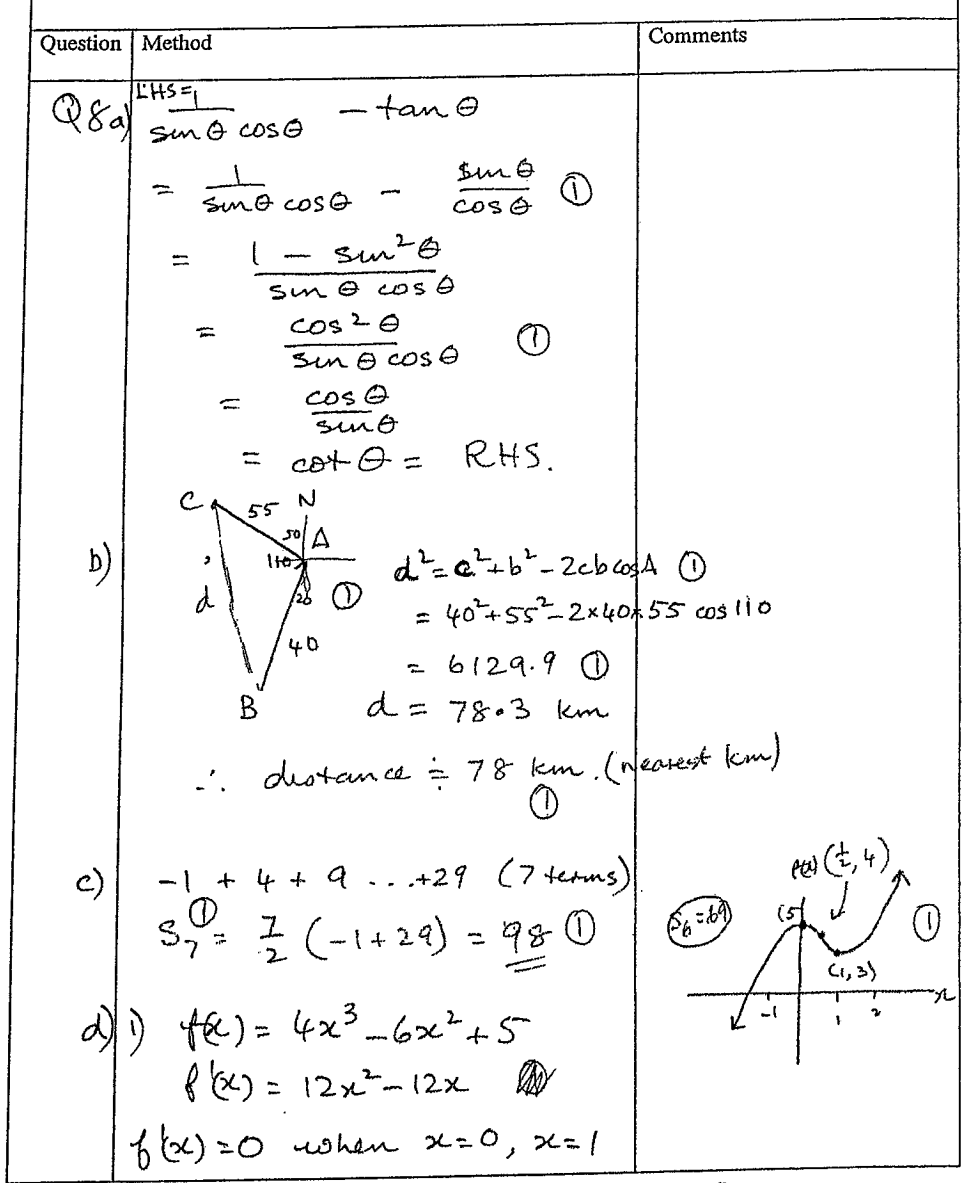 Question Method Comments
Q8a) LHS = 1/(sin θ cos θ) - tan θ
= 1/(sin θ cos θ) - sin θ/cos θ ①
= (1 - sin²θ)/(sin θ cos θ)
= cos²θ/(sin θ cos θ) ①
= cos θ/sin θ
= cot θ = RHS.
b)
C 55 N
50 A
110
d 20 ①
40
B
d² = c² + b² - 2cb cos A ①
= 40² + 55² - 2×40×55 cos 110
= 6129.9 ①
d = 78.3 km
∴ distance ≑ 78 km. (nearest km)
①
c) -1 + 4 + 9 ...+29 (7 terms)
S₇ ① = 7/2 (-1+29) = 98 ①
S₆ = 69
d) 1) f(x) = 4x³ - 6x² + 5
f'(x) = 12x² - 12x
f'(x) = 0 when x=0, x=1
(½, 4)
(5 ①
(1,3)
-1 1 2 x